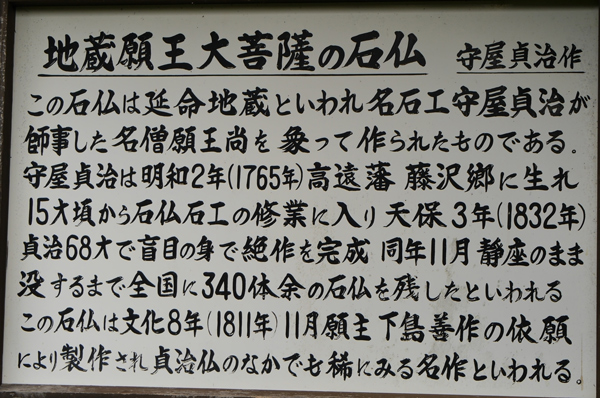 地蔵願王大菩薩の石仏 守屋貞治作
この石仏は延命地蔵といわれ名石工守屋貞治が
師事した名僧願王尚を象って作られたものである。
守屋貞治は明和2年(1765年)高遠藩 藤沢郷に生れ
15才頃から石仏石工の修業に入り天保3年(1832年)
貞治68才で盲目の身で絶作を完成 同年11月静座のまま
没するまで全国に340体余の石仏を残したといわれる
この石仏は文化8年(1811年)11月願主下島善作の依願
により製作され貞治仏のなかでも稀にみる名作といわれる。